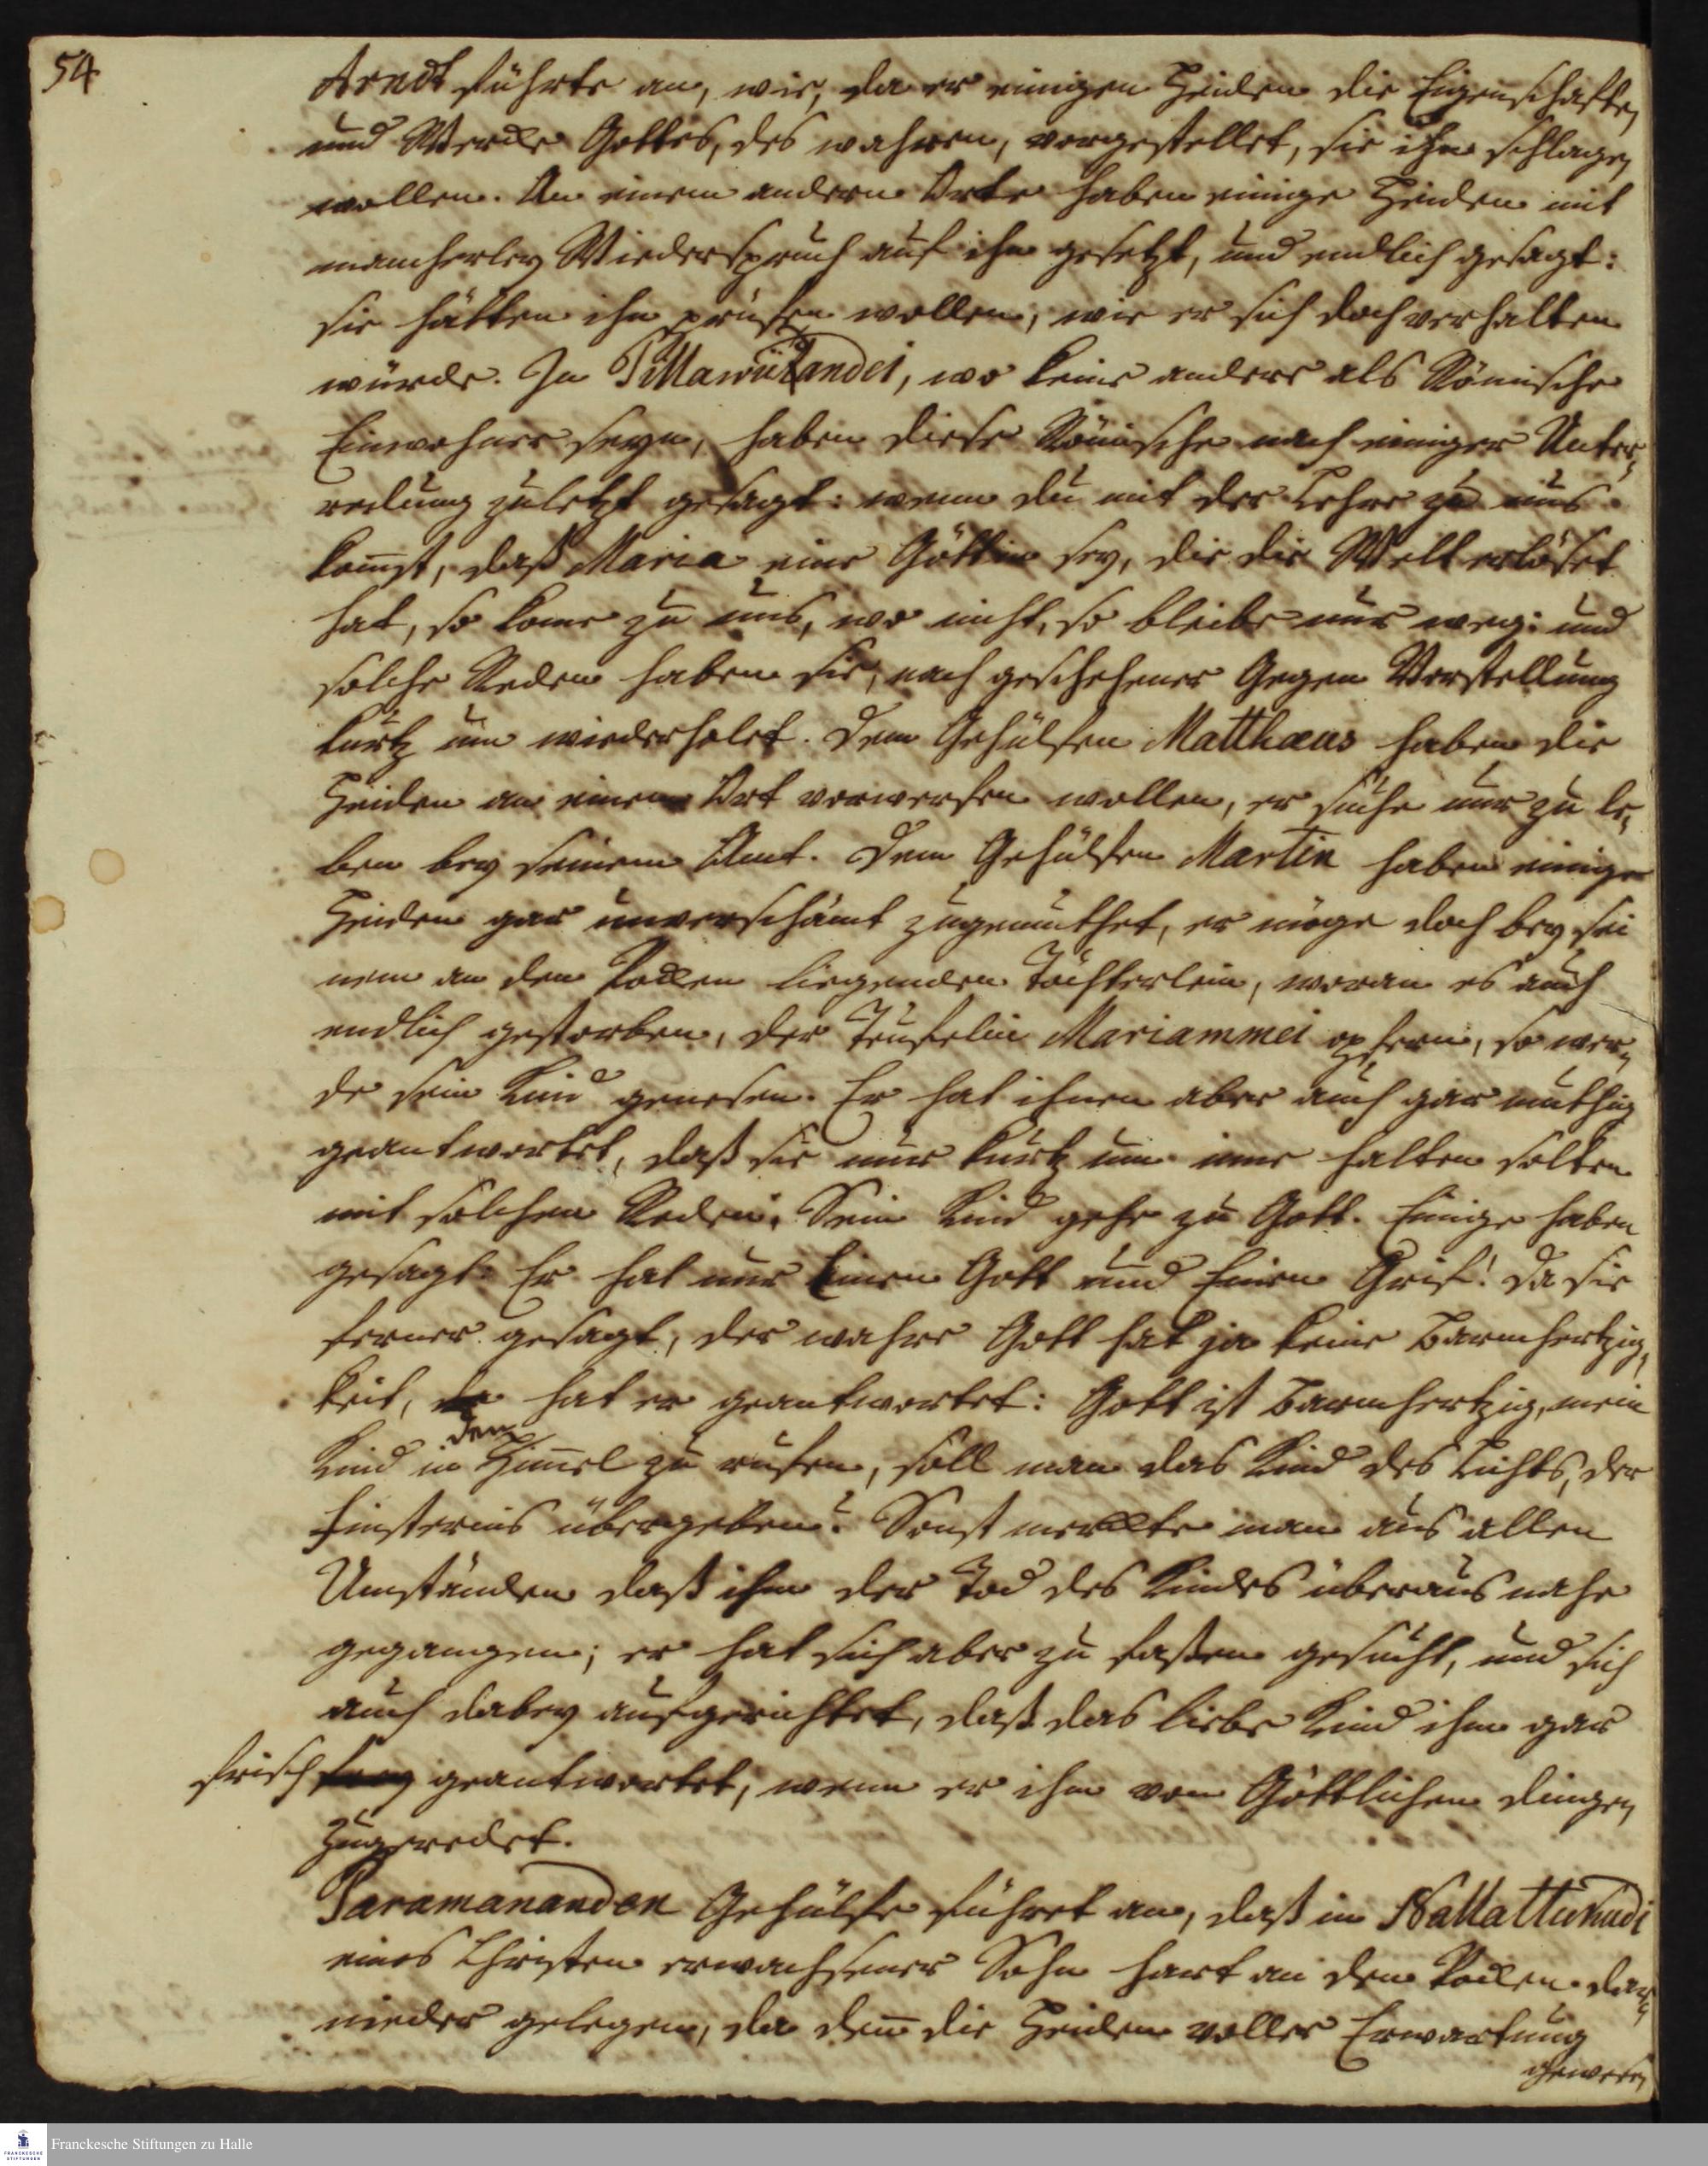 54
Arndt führte an, wie, da er einigen Heiden die Eigenschaften
und Wercke Gottes, des wahren, vorgestellet, sie ihn schlagen
wollen. An einem andern Orte haben einige Heiden mit
mancherley Wiederspruch auf ihn gesetzt, und endlich gesagt:
sie hätten ihn prüfen wollen, wie er sich doch verhalten
würde. In wo keine andere als Römische
Einwohner seyn, haben diese Römische nach einiger Unter-
redung zuletzt gesagt: wenn du mit der Lehre zu uns
komst, daß Maria eine Göttin sey, die die Welt erlöset
hat, so kome zu uns, wo nicht, so bleibe nur weg: und
solche Reden haben sie, nach geschehener Gegen Vorstellung
kurtz um wiederholet. Dem Gehülfen Matthæus haben die
Heiden an einem Ort vorwerfen wollen, er suche nur zu le-
ben bey seinem Amt. Dem Gehülfen Martin haben einige
Heiden gar unverschämt zugemuthet, er möge doch bey sei
nem an den Pocken liegenden Töchterlein, woran es auch
endlich gestorben, der Teufelin Mariammei opfern, so wer-
de sein Kind genesen. Er hat ihnen aber auch gar muthig
geantwortet, daß sie nur kurtz um inne halten solten
mit solchen Reden. Sein Kind gehe zu Gott. Einige haben
gesagt: Er hat nur Einen Gott und Einen Griff! Da sie
ferner gesagt, der wahre Gott hat ja keine Barmhertzig-
keit, hat er geantwortet: Gott ist Barmhertzig, mein
Kind in den Himel zu rufen, soll man das Kind des Lichts, der
Finsternis übergeben? Sonst merckte man aus allen
Umständen daß ihm der Tod des Kindes überaus nahe
gegangen; er hat sich aber zu faßen gesucht, und sich
auch dabey aufgerichtet, daß das liebe Kind ihm gar
frisch geantwortet, wenn er ihm von Göttlichen dingen
zugeredet.
Paramananden Gehülfe führet an, daß in Nallattukudi
eines Christen erwachsener Sohn hart an den Pocken dar-
nieder gelegen, da den die Heiden voller Erwartung
gewesen
Franckesche Stiftungen zu Halle
FRANCKESCHE
STIFTUNGEN